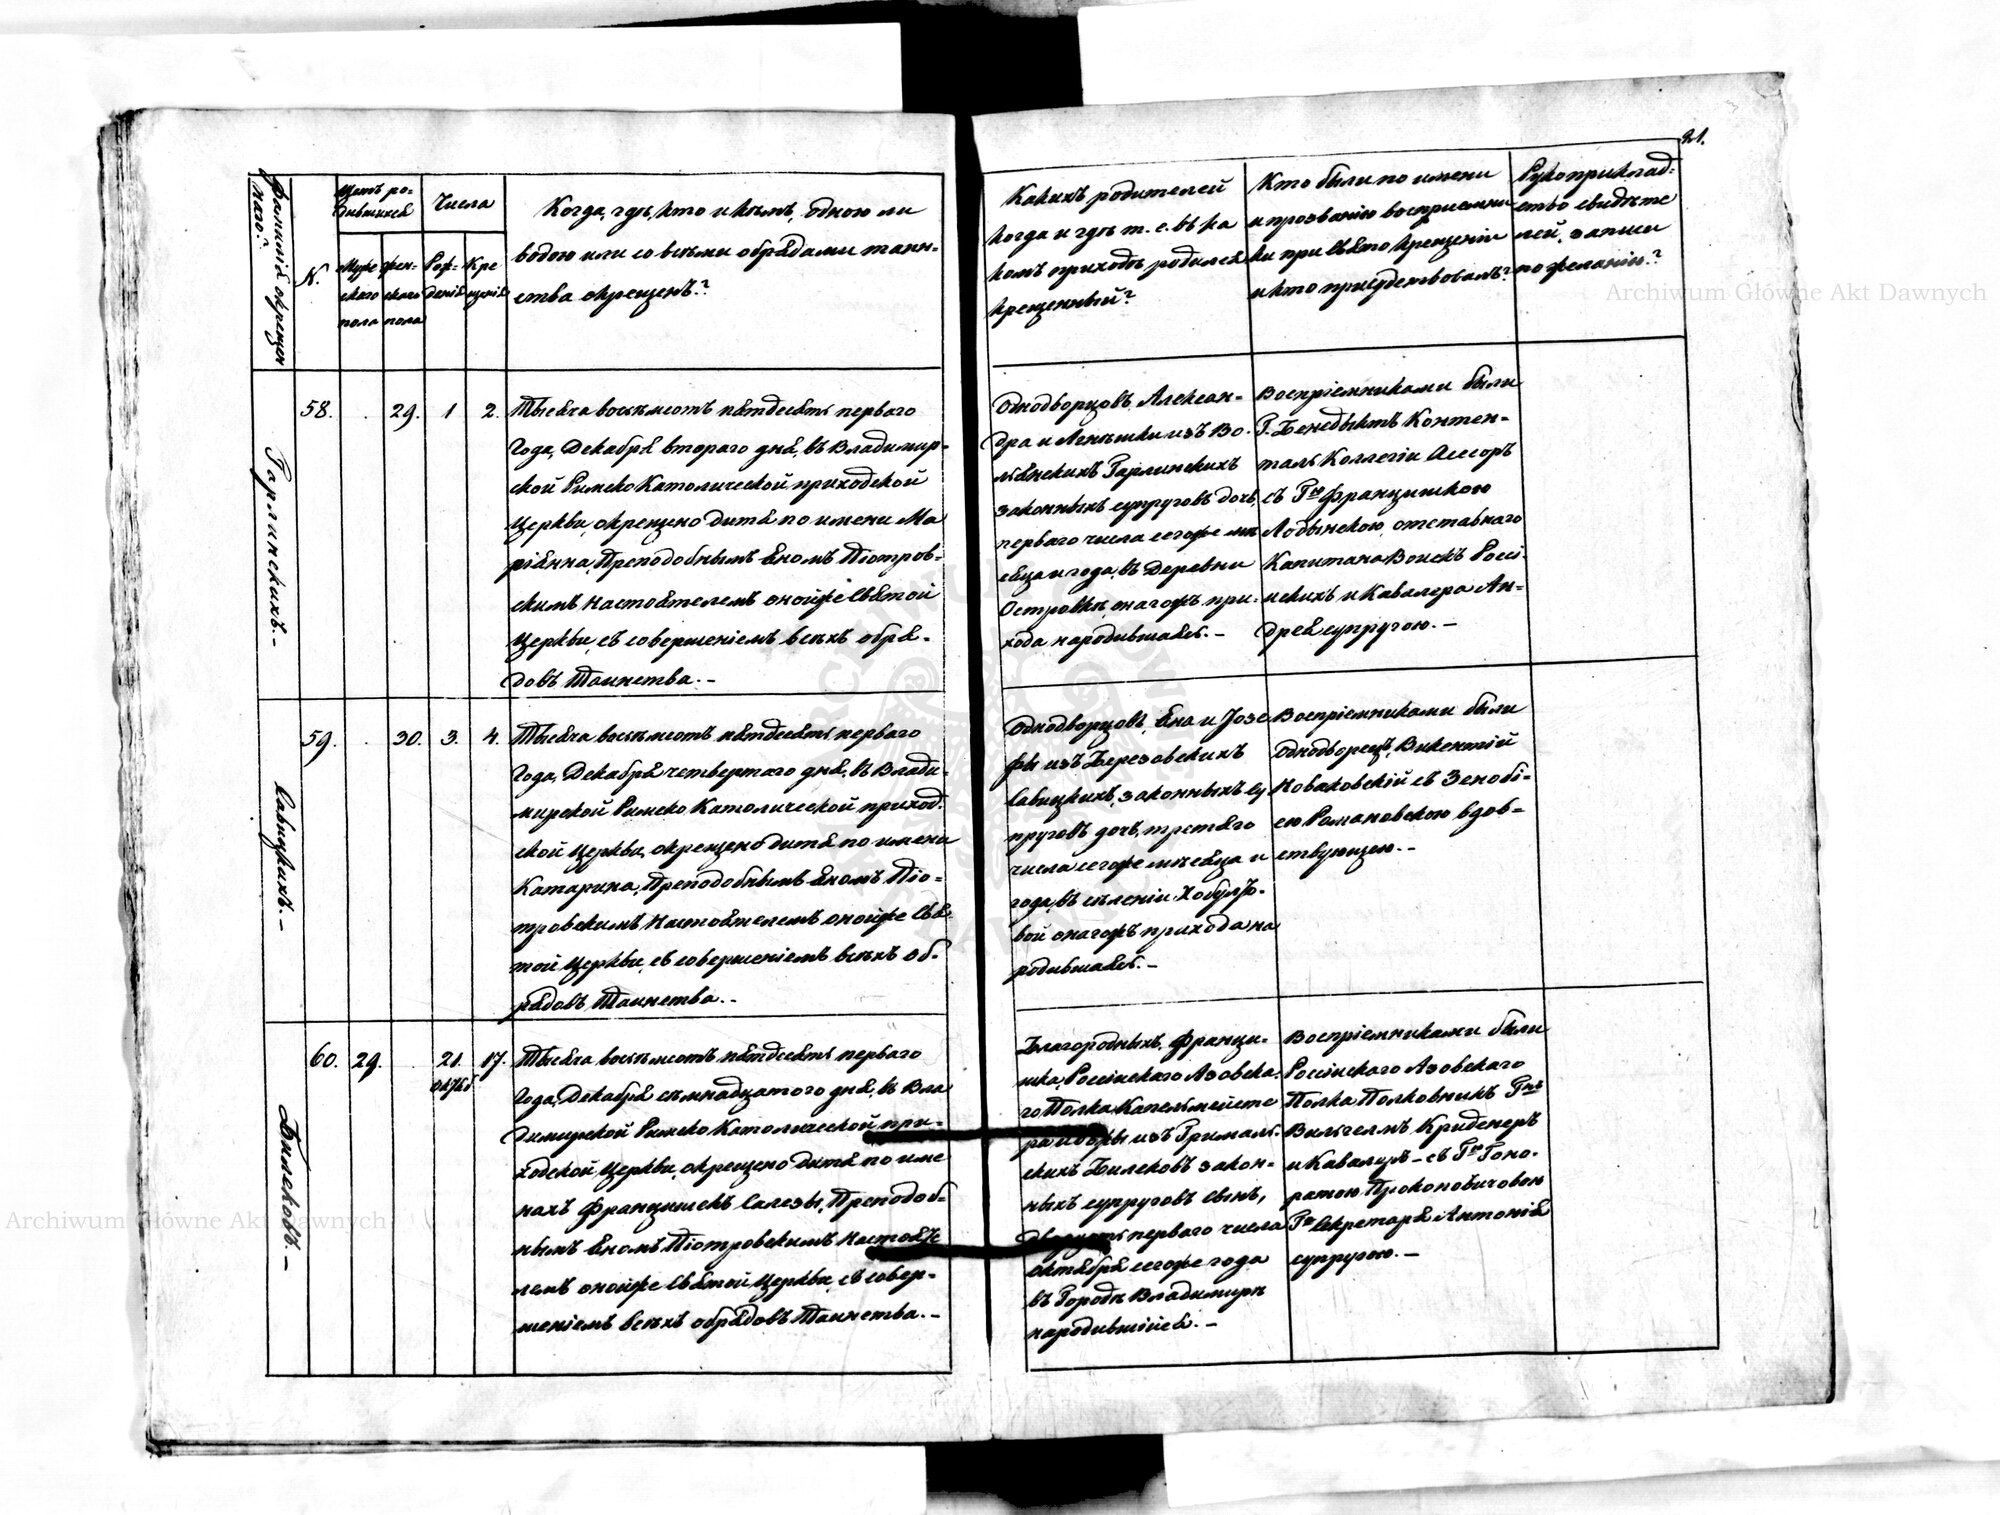 21.
Фамилія окрещен
наго?
N.
Щетъ ро-
дившихся
Числа
Муже
скаго
пола
Жен-
скаго
пола
Рож-
денія
Кре
щенія
Когда, гдѣ, кто и кѣмъ, одною ли
водою или со всѣми обрядами таин-
ства окрещенъ?
Какихъ родителей
когда и гдѣ т. е. въ ка
комъ приходѣ родился
крещенный?
Кто были по имени
и прозванію воспріемни
ки при Свято крещеніи
и кто присудствовалъ?
Рукоприклад-
ство свидѣте
лей, записи
по желанію?
Гарлинскихъ.-
58. . 29. 1 2.
Тысяча восѣмсотъ пятдесятъ перваго
года, Декабря втораго дня, въ Владимир-
ской Римско Католической приходской
Церкви, окрещено дитя по имени Ма
ріянна, Преподобнымъ Яномъ Піотров-
скимъ Настоятелемъ онойже Святой
Церкви, съ совершеніемъ всѣхъ обря-
довъ Таинства.-
Однодворцовъ, Алексан-
дра и Агнѣшки изъ Во-
лянскихъ Гарлинскихъ
законныхъ супруговъ дочь,
перваго числа сегоже мѣ
сяца и года, въ Деревни
Островкѣ онагожъ при-
хода народившаяся.-
Воспріемниками были
Г. Бенедыктъ Контен-
таль Коллегіи Асесоръ
съ Гжею Францишкою
Лодынскою, отставнаго
Капитана Воискъ Россі-
искихъ и Кавалера Ан-
дрея супругою.-
Савицкихъ.-
59. . 30. 3. 4.
Тысяча восѣмсотъ пятдесятъ перваго
года, Декабря четвертаго дня, въ Влади-
мирской Римско Католической приход-
ской Церкви, окрещено дитя по имени
Катарина, Преподобнымъ Яномъ Піо-
тровскимъ Настоятелемъ онойже Свя-
той Церкви, съ совершеніемъ всѣхъ об-
рядовъ Таинства.-
Однодворцовъ, Яна и Іозе
фы изъ Березовскихъ
Савицкихъ, законныхъ су
пруговъ дочь, третяго
числа сегоже мѣсяца и
года, въ селеніи
онагожъ прихода на
родившаяся.-
Воспріемниками были
Однодворецъ, Викентій
Новаковскій съ Зенобі-
ею Романовскою вдов-
ствующею.-
Билековъ.-
60. 29. . 21 17.
октяб
Тысяча восѣмсотъ пятдесятъ перваго
года, Декабря семнадцатого дня, въ Вла
димирской Римско Католической при-
ходской Церкви, окрещено дитя по име
нахъ Францишекъ Салезы, Преподоб-
нымъ Яномъ Піотровскимъ Настояте
лемъ онойже Святой Церкви, съ совер-
шеніемъ всѣхъ обрядовъ Таинства.-
Благородныхъ, Франци-
шка, Россійскаго Азовска-
го Полка Капельмейсте
ра и изъ Грималь-
скихъ Билековъ закон-
ныхъ супруговъ сынъ,
двадцать перваго числа
октября сегоже года
въ Городѣ Владимирѣ
народившійся.-
Воспріемниками были
Россійскаго Азовскаго
Полка Полковникъ Гнъ
Вильгелмъ Криденеръ
и Кавалеръ - съ Гжею Гоно-
ратою Прокоповичовою
Гна Секретаря Антонія
супругою.-
Archiwum Główne Akt Dawnych
Archiwum Główne Akt Dawnych